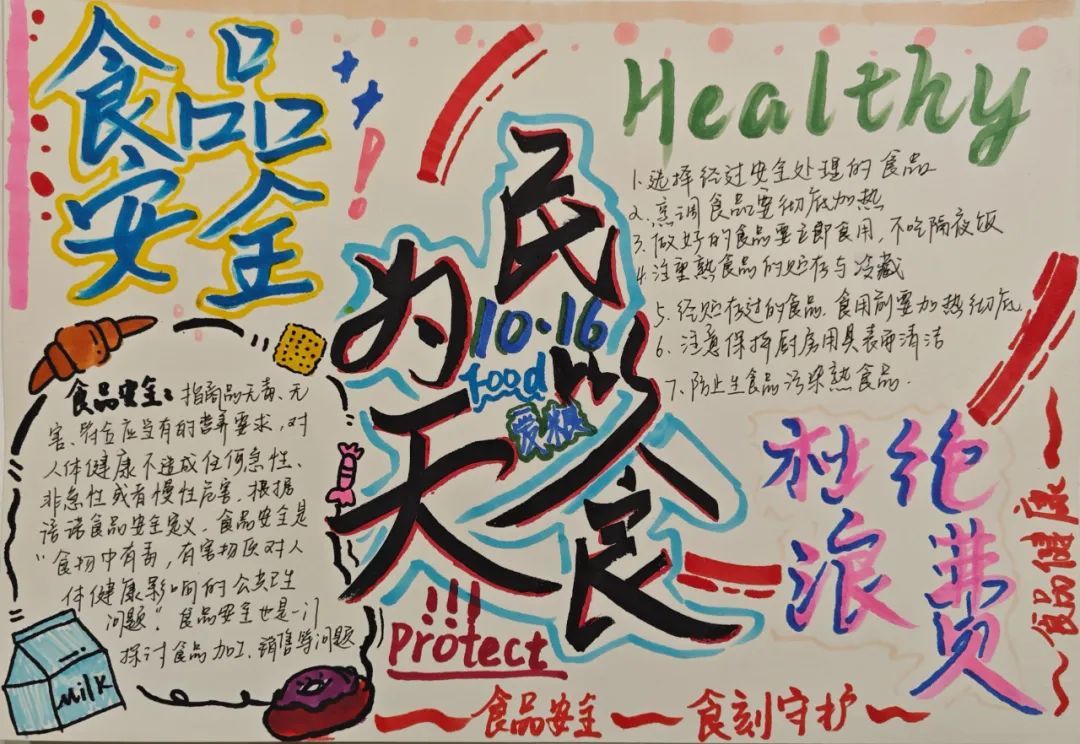 食品
安全
Healthy
1.选择经过安全处理的食品
2、烹调食品要彻底加热
3.做好的食品要立即食用,不吃隔夜饭
4.注重熟食品的贮存与冷藏
5.经贮存过的食品.食用前要加热彻底
6.注意保持厨房用具表面清洁
7.防止生食品污染熟食品.
民以食
为天
10·16
food
爱粮
食品安全:指商品无毒、无
害、符合应当有的营养要求,对
人体健康不造成任何急性、
非急性或有慢性危害.根据
食品安全定义,食品安全是
“食物中有毒,有害物质对人
体健康影响的公共卫生
问题”.食品安全也是一门
探讨食品加工、销售等问题
milk
!!!
Protect
杜绝
浪费
食品健康
食品安全
食刻守护